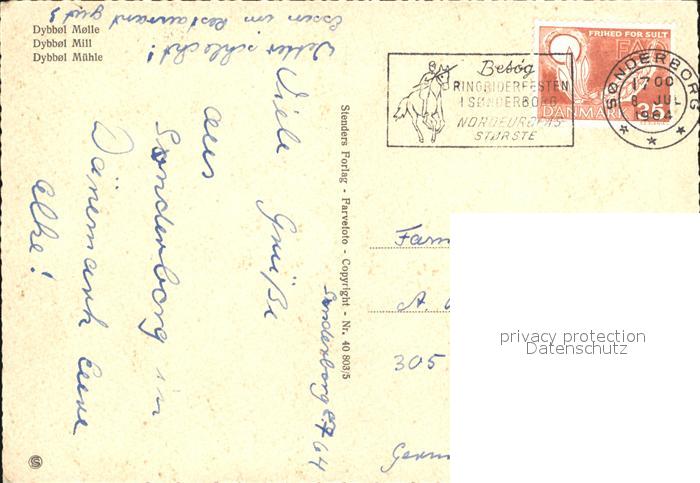 Dybbøl Mølle
Dybbøl Mill
Dybbøl Mühle
Essen im Restaurant gut!
Wetter schlecht!
Sonderborg 8.7.64
Viele Grüße
aus
Sonderborg in
Dänemark Eure
Elke!
Stenders Forlag - Farvefoto - Copyright - Nr. 40 803/5
Besøg
RINGRIDERFESTEN
I SØNDERBORG
NORDEUROPAS
STØRSTE
FRIHED FOR SULT
FAO
DANMARK 35
SØNDERBORG
17 00
8 JUL
1964
Fam
A.
305
Germ
privacy protection
Datenschutz